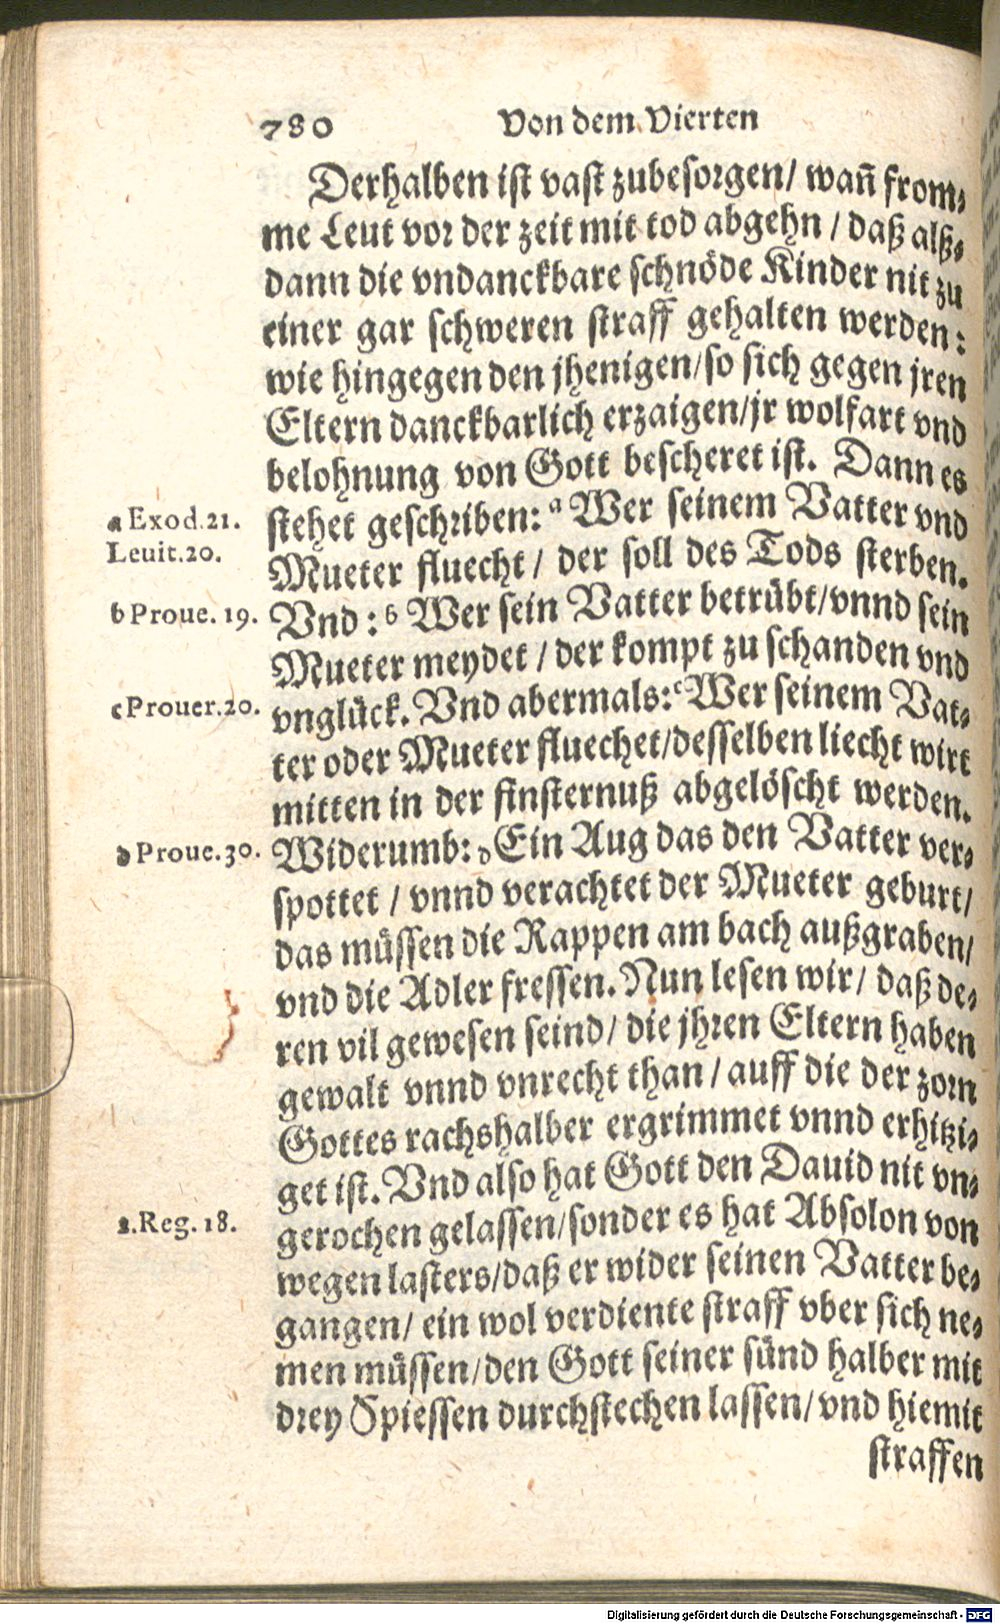 780 Von dem Vierten
Derhalben ist vast zubesorgen/ wañ from-
me Leut vor der zeit mit tod abgehn / daß alß-
dann die vndanckbare schnöde Kinder nit zu
einer gar schweren straff gehalten werden:
wie hingegen den jhenigen/so sich gegen jren
Eltern danckbarlich erzaigen/jr wolfart vnd
belohnung von Gott bescheret ist. Dann es
a Exod.21.
stehet geschriben: a Wer seinem Vatter vnd
Leuit.20.
Mueter fluecht / der soll des Tods sterben.
b Proue. 19.
Vnd : b Wer sein Vatter betrübt/vnnd sein
Mueter meydet / der kompt zu schanden vnd
c Prouer.20.
vnglück. Vnd abermals: c Wer seinem Vat-
ter oder Mueter fluechet/desselben liecht wirt
mitten in der finsternuß abgelöscht werden.
d Proue.30.
Widerumb: d Ein Aug das den Vatter ver-
spottet / vnnd verachtet der Mueter geburt/
das müssen die Rappen am bach außgraben/
vnd die Adler fressen. Nun lesen wir/ daß de-
ren vil gewesen seind/ die jhren Eltern haben
gewalt vnnd vnrecht than / auff die der zorn
Gottes rachshalber ergrimmet vnnd erhitzi-
get ist. Vnd also hat Gott den Dauid nit vn-
2.Reg. 18.
gerochen gelassen/sonder es hat Absolon von
wegen lasters/daß er wider seinen Vatter be-
gangen/ ein wol verdiente straff vber sich ne-
men müssen/den Gott seiner sünd halber mit
drey Spiessen durchstechen lassen/ vnd hiemit
straffen
Digitalisierung gefördert durch die Deutsche Forschungsgemeinschaft - DFG